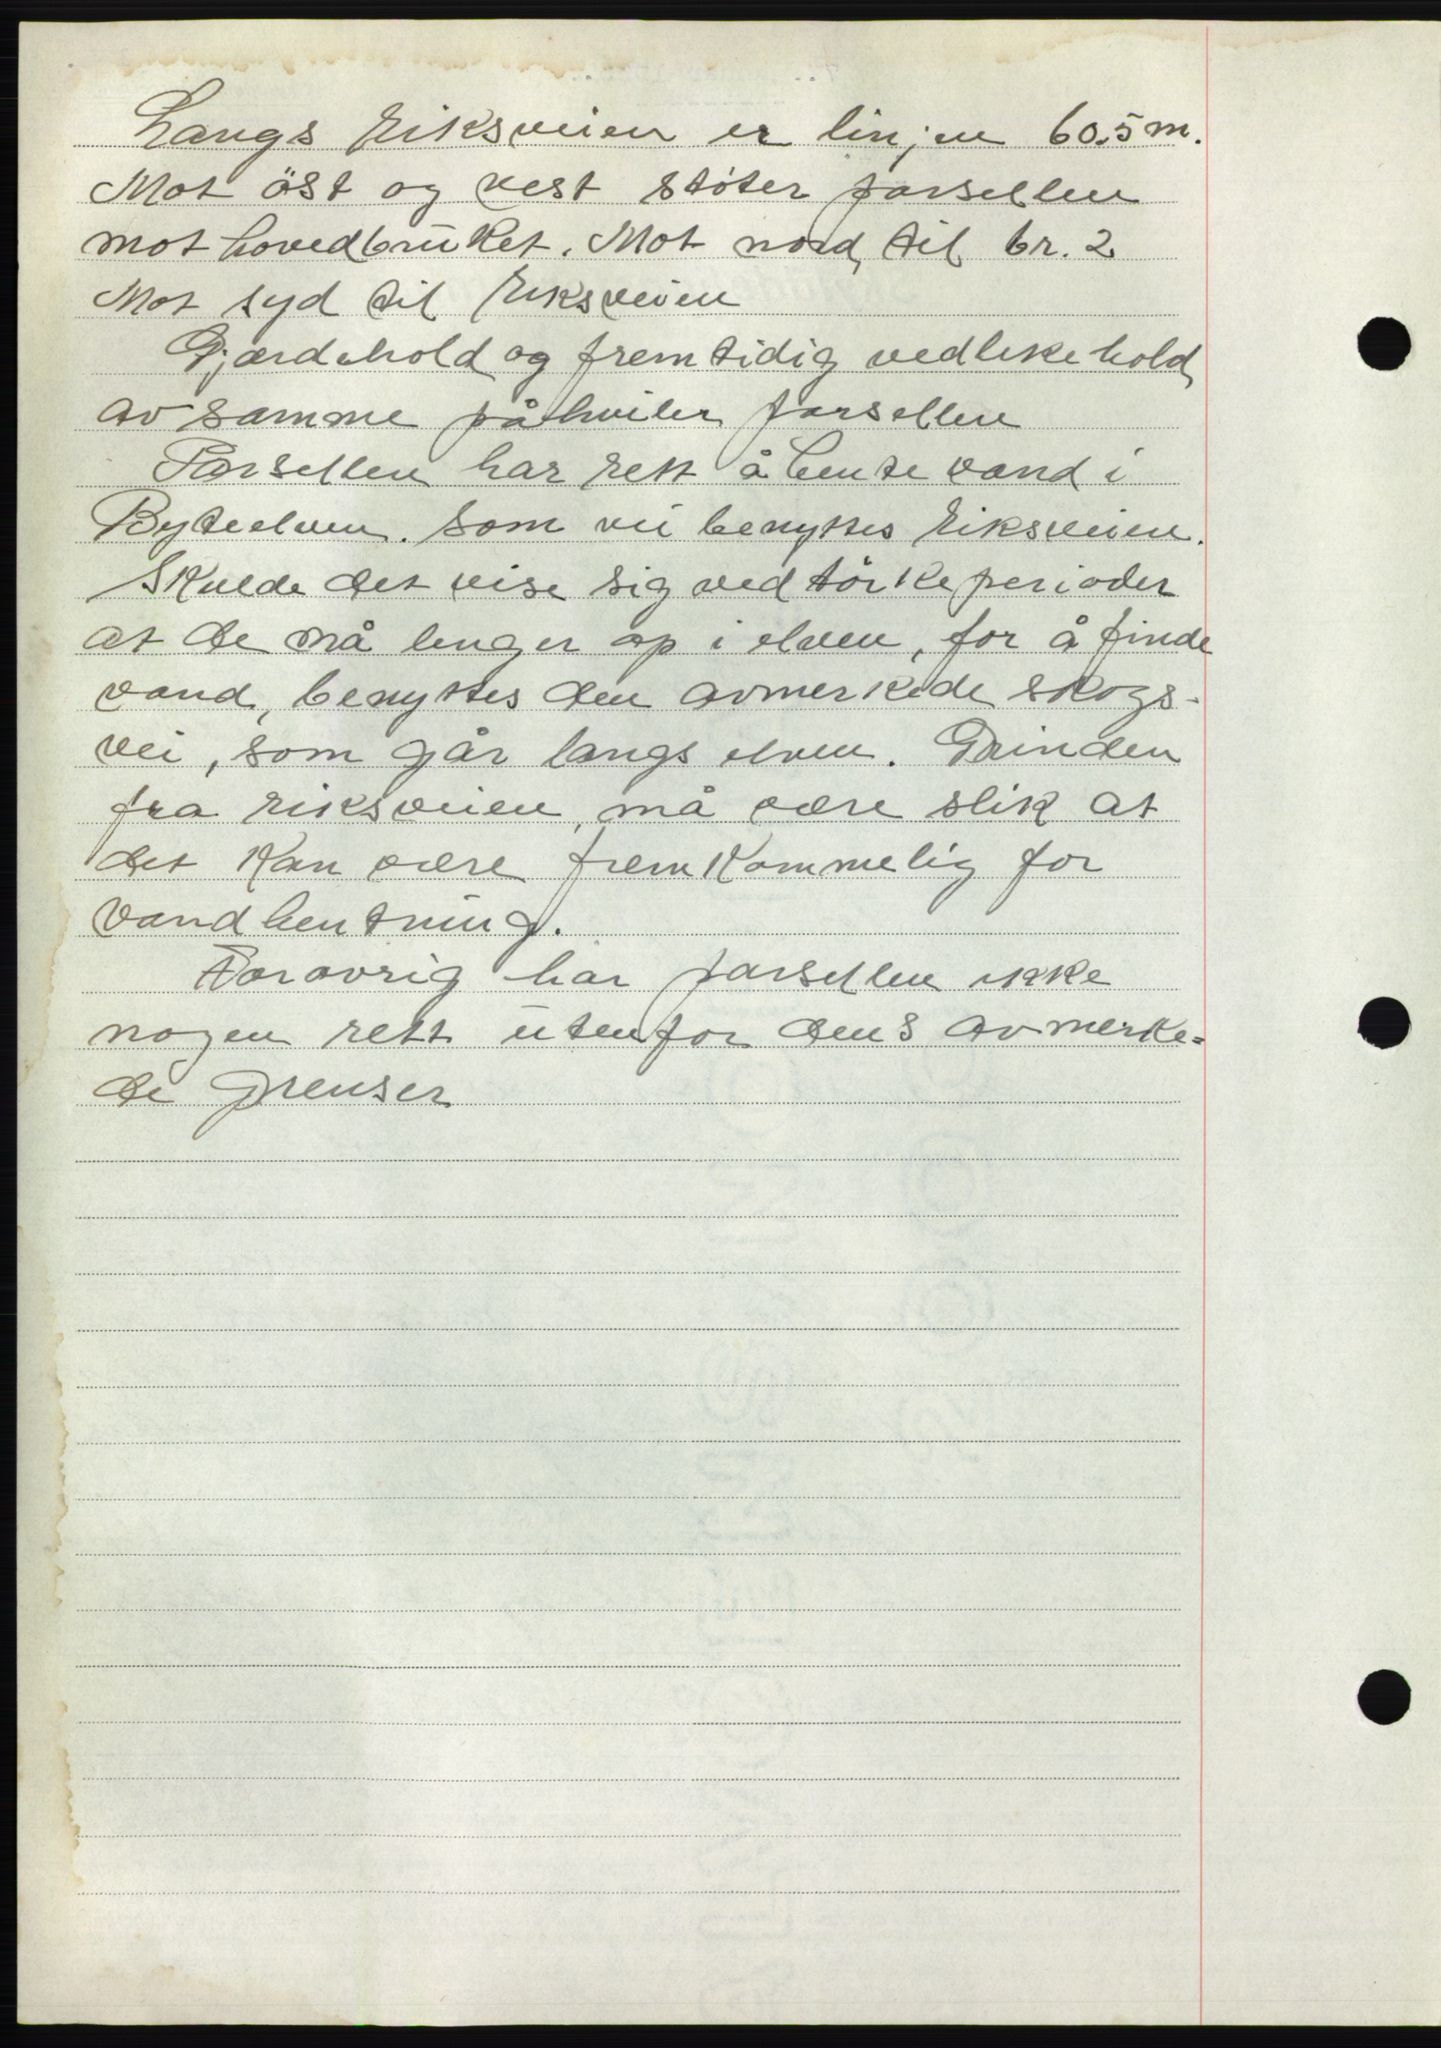 Langs riksveien er linjen 60.5 m.
Mot öst og vest støter parsellen
mot hovedbrüket. Mot nord til br. 2
Mot syd til riksveien
Gjærdehold og fremtidig vedlikehold
av samme påhviler parsellen
Parsellen har rett å hente vand i
Byteelven. Som vei benyttes riksveien.
Skulde det vise sig ved törkeperioder
at de må lenger op i elven, for å finde
vand, benyttes den avmerkede skogs-
vei, som går langs elven. Grinden
fra riksveien, må være slik at
det kan være fremkommelig for
vandhentning.
Forøvrig har parsellen ikke
nogen rett ütenfor dens avmerke=
de grenser